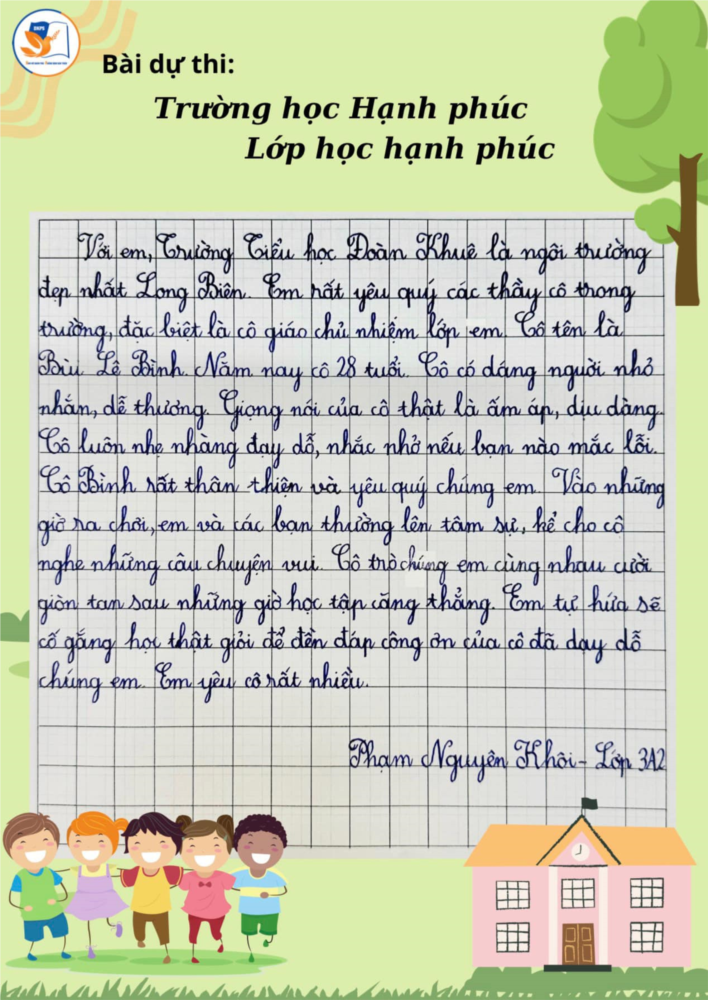 ĐKPS
Bài dự thi:
Trường học Hạnh phúc
Lớp học hạnh phúc
Với em, Trường Tiểu học Đoàn Khuê là ngôi trường
đẹp nhất Long Biên. Em rất yêu quý các thầy cô trong
trường, đặc biệt là cô giáo chủ nhiệm lớp em. Cô tên là
Bùi Lê Bình. Năm nay cô 28 tuổi. Cô có dáng người nhỏ
nhắn, dễ thương. Giọng nói của cô thật là ấm áp, dịu dàng.
Cô luôn nhẹ nhàng dạy dỗ, nhắc nhở nếu bạn nào mắc lỗi.
Cô Bình rất thân thiện và yêu quý chúng em. Vào những
giờ ra chơi, em và các bạn thường lên tâm sự, kể cho cô
nghe những câu chuyện vui. Cô trò chúng em cùng nhau cười
giòn tan sau những giờ học tập căng thẳng. Em tự hứa sẽ
cố gắng học thật giỏi để đền đáp công ơn của cô đã dạy dỗ
chúng em. Em yêu cô rất nhiều.
Phạm Nguyên Khôi - Lớp 3A2